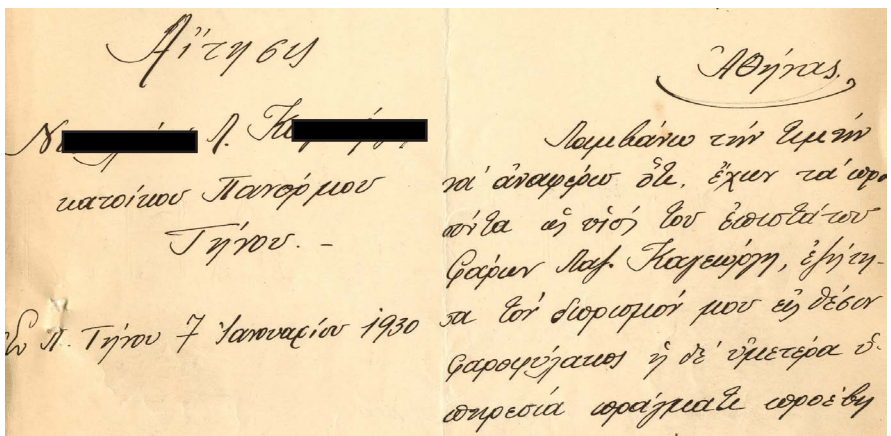 Αἴτησις
Λ.
κατοίκου Πανόρμου
Τήνου. -
Τήνου 7 Ἰανουαρίου 1930
Ἀθήνας.
Λαμβάνω τὴν τιμὴν
νὰ ἀναφέρω ὅτι, ἔχων τὰ προ
σόντα ὡς υἱὸς τοῦ ἐπιστάτου
Φάρων Λαζ. ἐζήτη-
σα τὸν διορισμόν μου εἰς θέσιν
φαροφύλακος ἡ δὲ ὑμετέρα ὑ-
πηρεσία πράγματι προέβη